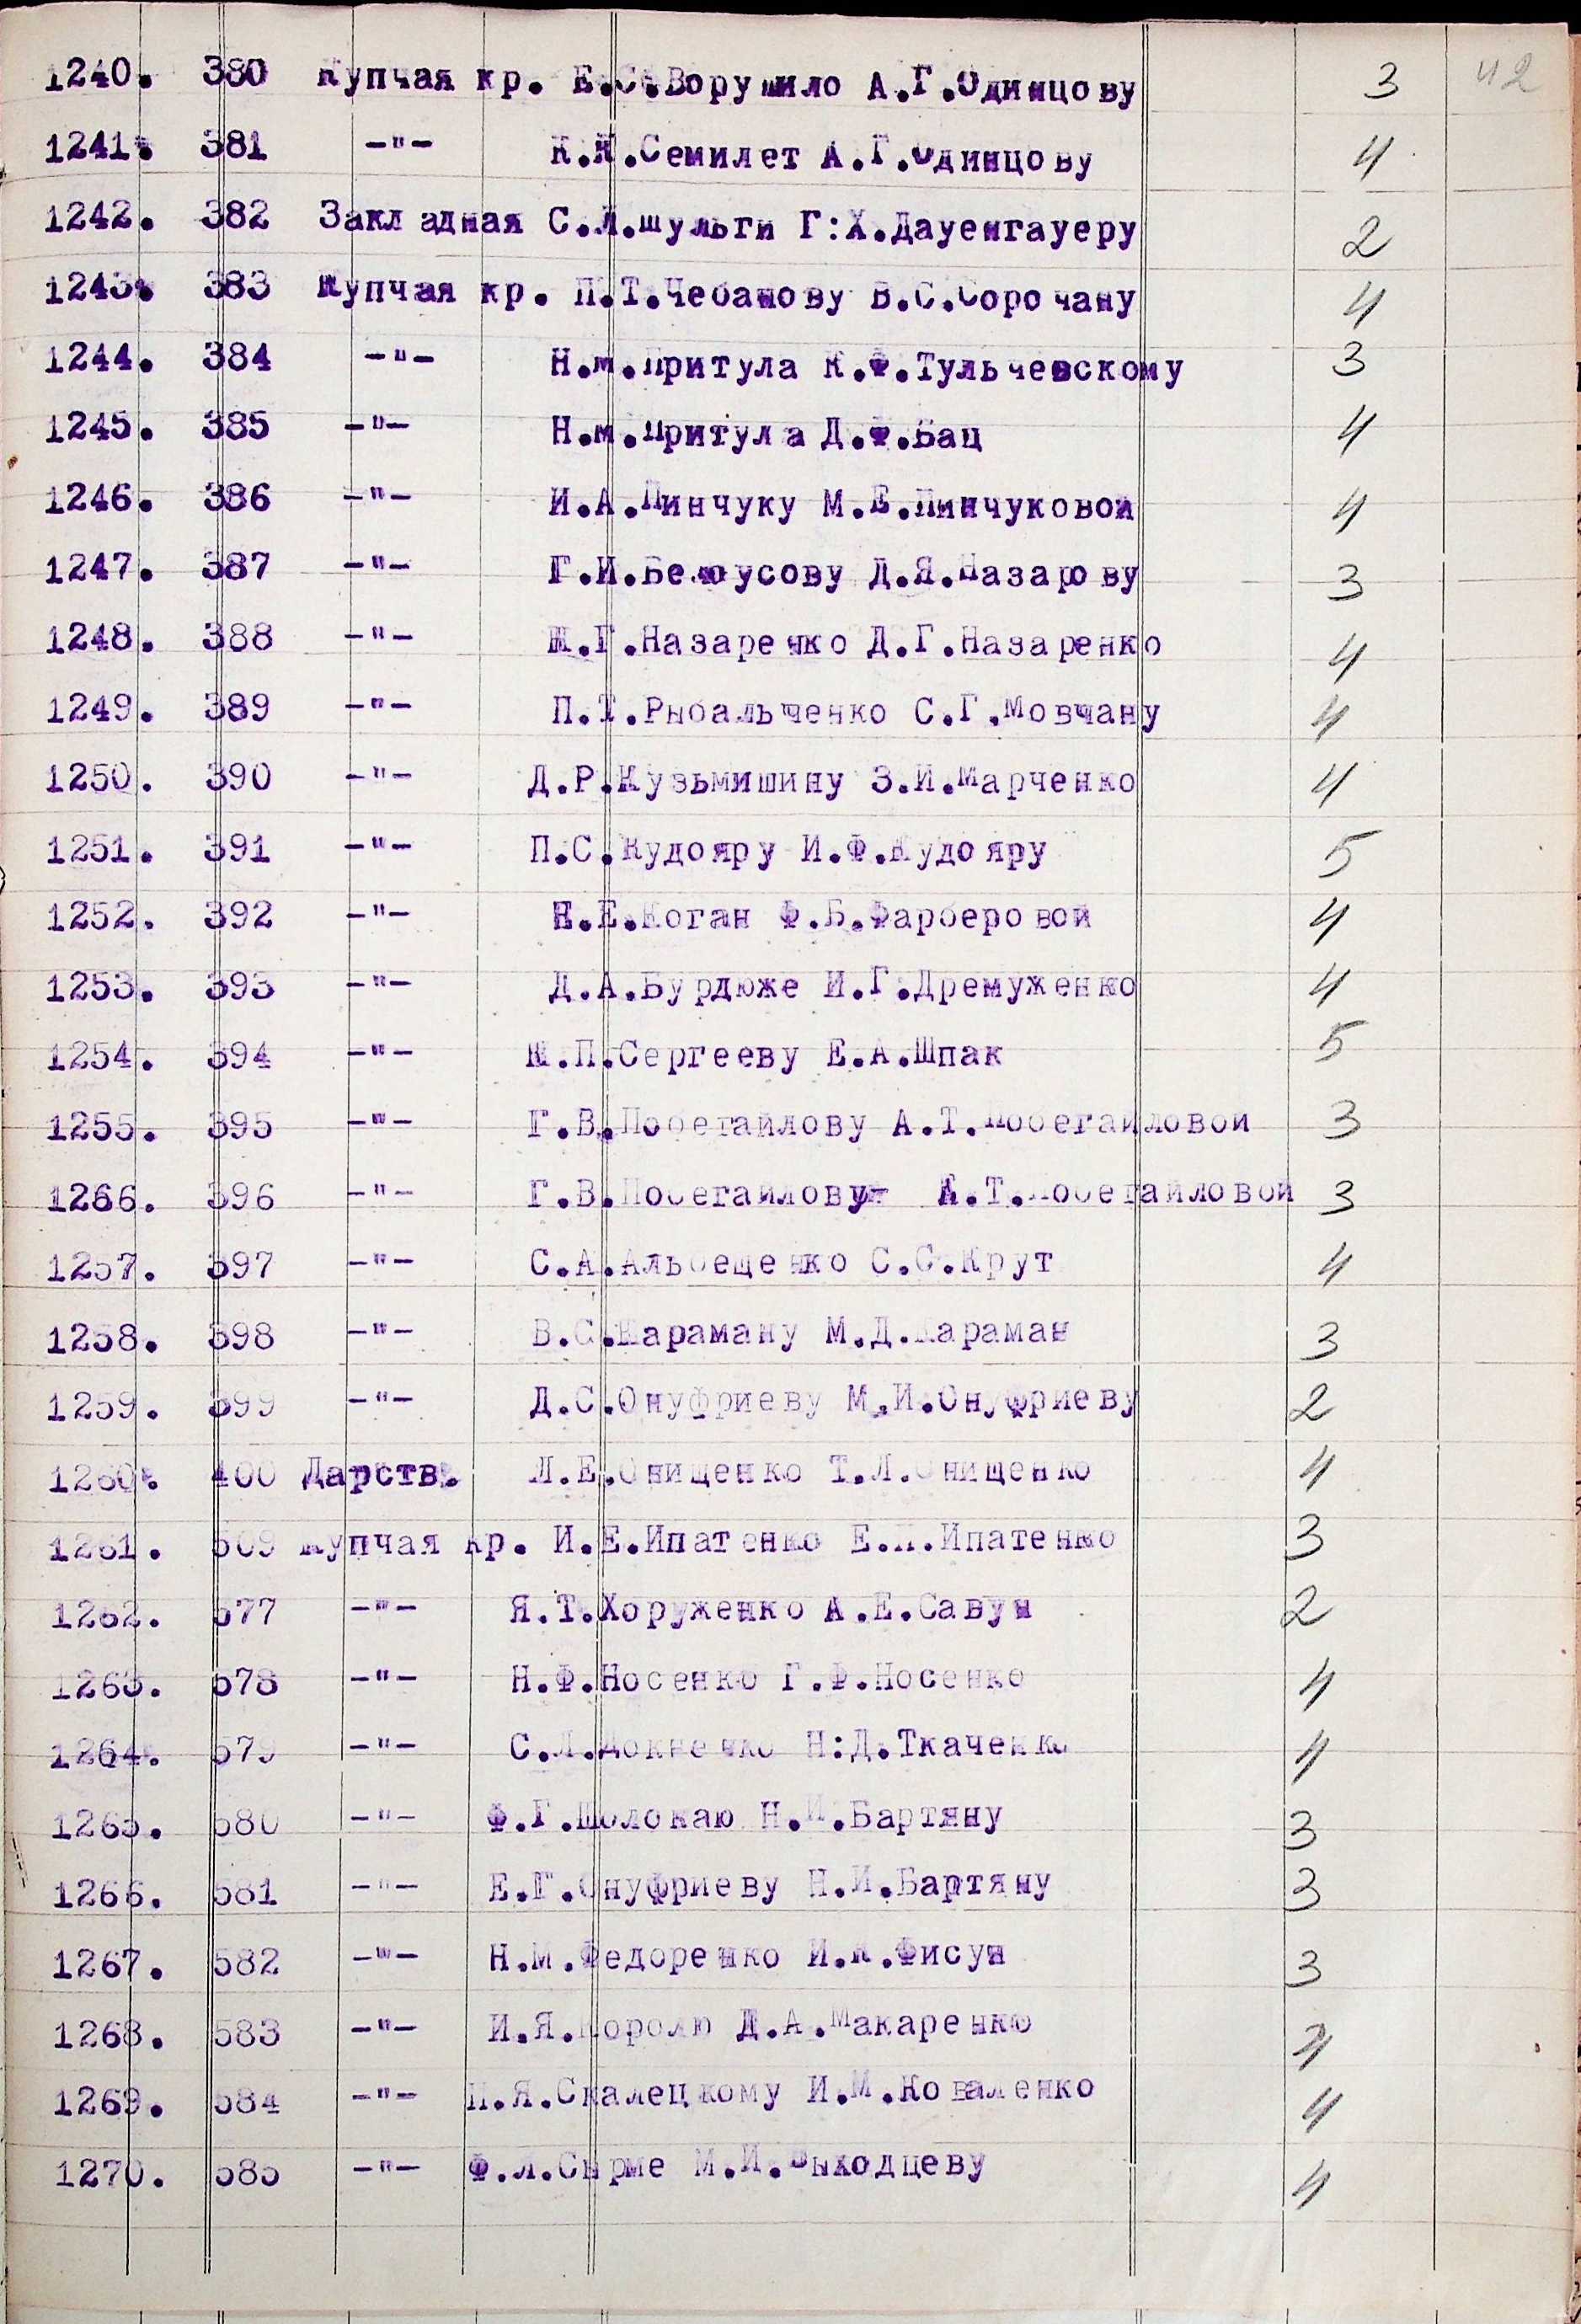 42
1240. 380 Купчая кр. Е.С.Ворушило А.Г.Одинцову 3
1241. 381 -"- К.Н.Семилет А.Г.Одинцову 4
1242. 382 Закладная С.Л.Шульги Г:Х.Дауенгауеру 2
1243. 383 Купчая кр. П.Т.Чебанову В.С.Сорочану 4
1244. 384 -"- Н.М.Притула К.Ф.Тульчевскому 3
1245. 385 -"- Н.М.Притула Д.Ф.Бац 4
1246. 386 -"- И.А.Пинчуку М.Е.Пинчуковой 4
1247. 387 -"- Г.И.Белоусову Д.Я.Назарову 3
1248. 388 -"- Г.Назаренко Д.Г.Назаренко 4
1249. 389 -"- П.Т.Рыбальченко С.Г.Мовчану 4
1250. 390 -"- Д.Р.Кузьмишину З.И.Марченко 4
1251. 391 -"- П.С.Кудояру И.Ф.Кудояру 5
1252. 392 -"- Е.Е.Коган Ф.Б.Фарберовой 4
1253. 393 -"- Д.А.Бурдюже И.Г.Дремуженко 4
1254. 394 -"- П.Сергееву Е.А.Шпак 5
1255. 395 -"- Г.В.Побегайлову А.Т.Побегайловой 3
1266. 396 -"- Г.В.Побегайлову- А.Т.Побегайловой 3
1257. 397 -"- С.А.Альбещенко С.С.Крут 4
1258. 398 -"- В.С.Караману М.Д.Караман 3
1259. 399 -"- Д.С.Онуфриеву М.И.Онуфриеву 2
1260. 400 Дарств. Л.Е.Онищенко Т.Л.Онищенко 4
1261. 509 Купчая кр. И.Е.Ипатенко Е.И.Ипатенко 3
1262. 577 -"- Я.Т.Хоруженко А.Е.Савун 2
1263. 578 -"- Н.Ф.Носенко Г.Ф.Носенко 4
1264. 579 -"- С.Л. Н:Д.Ткаченко 4
1265. 580 -"- Ф.Г.Шолокаю Н.И.Бартяну 3
1266. 581 -"- Е.Г.Онуфриеву Н.И.Бартяну 3
1267. 582 -"- Н.М.Федоренко И.К.Фисун 3
1268. 583 -"- И.Я.Королю Д.А.Макаренко 4
1269. 584 -"- П.Я.Скалецкому И.М.Коваленко 4
1270. 585 -"- Ф.Л.Сырме М.И.Выходцеву 4